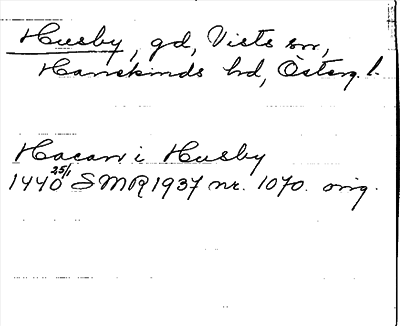 Husby, gd, Vists sn,
Hanekinds hd, Österg. l.
Hacan i Husby
1440 25/1 SMR 1937 nr. 1070. orig.